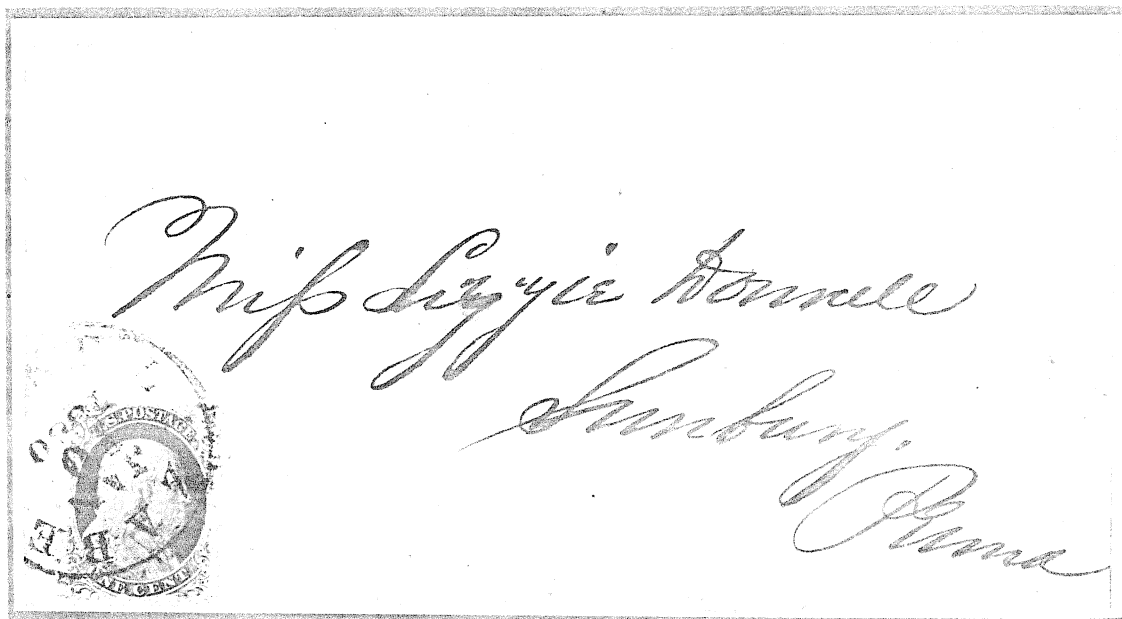 Miss Lizzie Donnell
Sunbury.
Penna
U.S. POSTAGE
ONE CENT